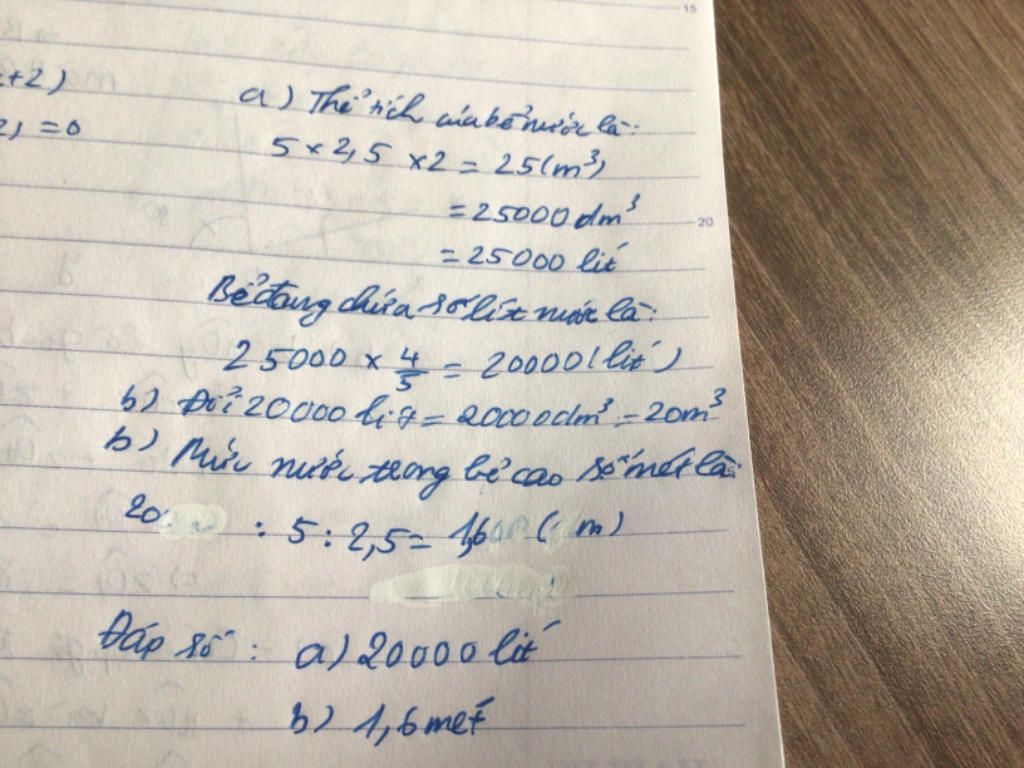 15
+2)
a) Thể tích của bể nước là:
2) =0
5 × 2,5 × 2 = 25(m³)
= 25000 dm³
20
= 25000 lít
Bể đang chứa số lít nước là:
25000 × 4/5 = 20000 (lít)
b) Đổi 20000 lít = 20000dm³ = 20m³
b) Mức nước trong bể cao số mét là:
20 : 5 : 2,5 = 1,6 (m)
Đáp số : a) 20000 lít
b) 1,6 mét